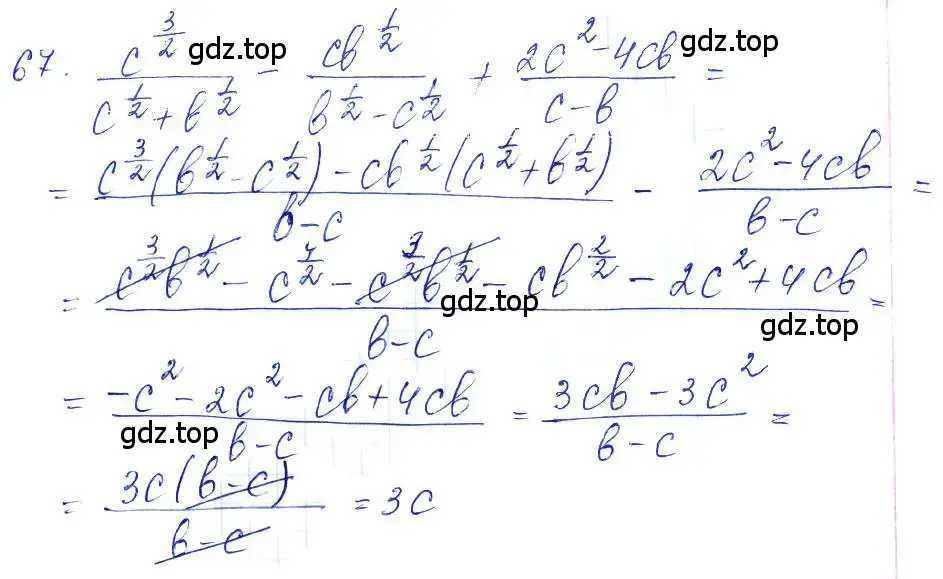 67. \frac{c^{\frac{3}{2}}}{c^{\frac{1}{2}}+b^{\frac{1}{2}}} - \frac{cb^{\frac{1}{2}}}{b^{\frac{1}{2}}-c^{\frac{1}{2}}} + \frac{2c^2-4cb}{c-b} =
= \frac{c^{\frac{3}{2}}(b^{\frac{1}{2}}-c^{\frac{1}{2}})-cb^{\frac{1}{2}}(c^{\frac{1}{2}}+b^{\frac{1}{2}})}{b-c} - \frac{2c^2-4cb}{b-c} =
= \frac{c^{\frac{3}{2}}b^{\frac{1}{2}} - c^{\frac{4}{2}} - c^{\frac{3}{2}}b^{\frac{1}{2}} - cb^{\frac{2}{2}} - 2c^2+4cb}{b-c} =
= \frac{-c^2-2c^2-cb+4cb}{b-c} = \frac{3cb-3c^2}{b-c} =
= \frac{3c(b-c)}{b-c} = 3c
gdz.top
gdz.top
gdz.top
gdz.top
gdz.top